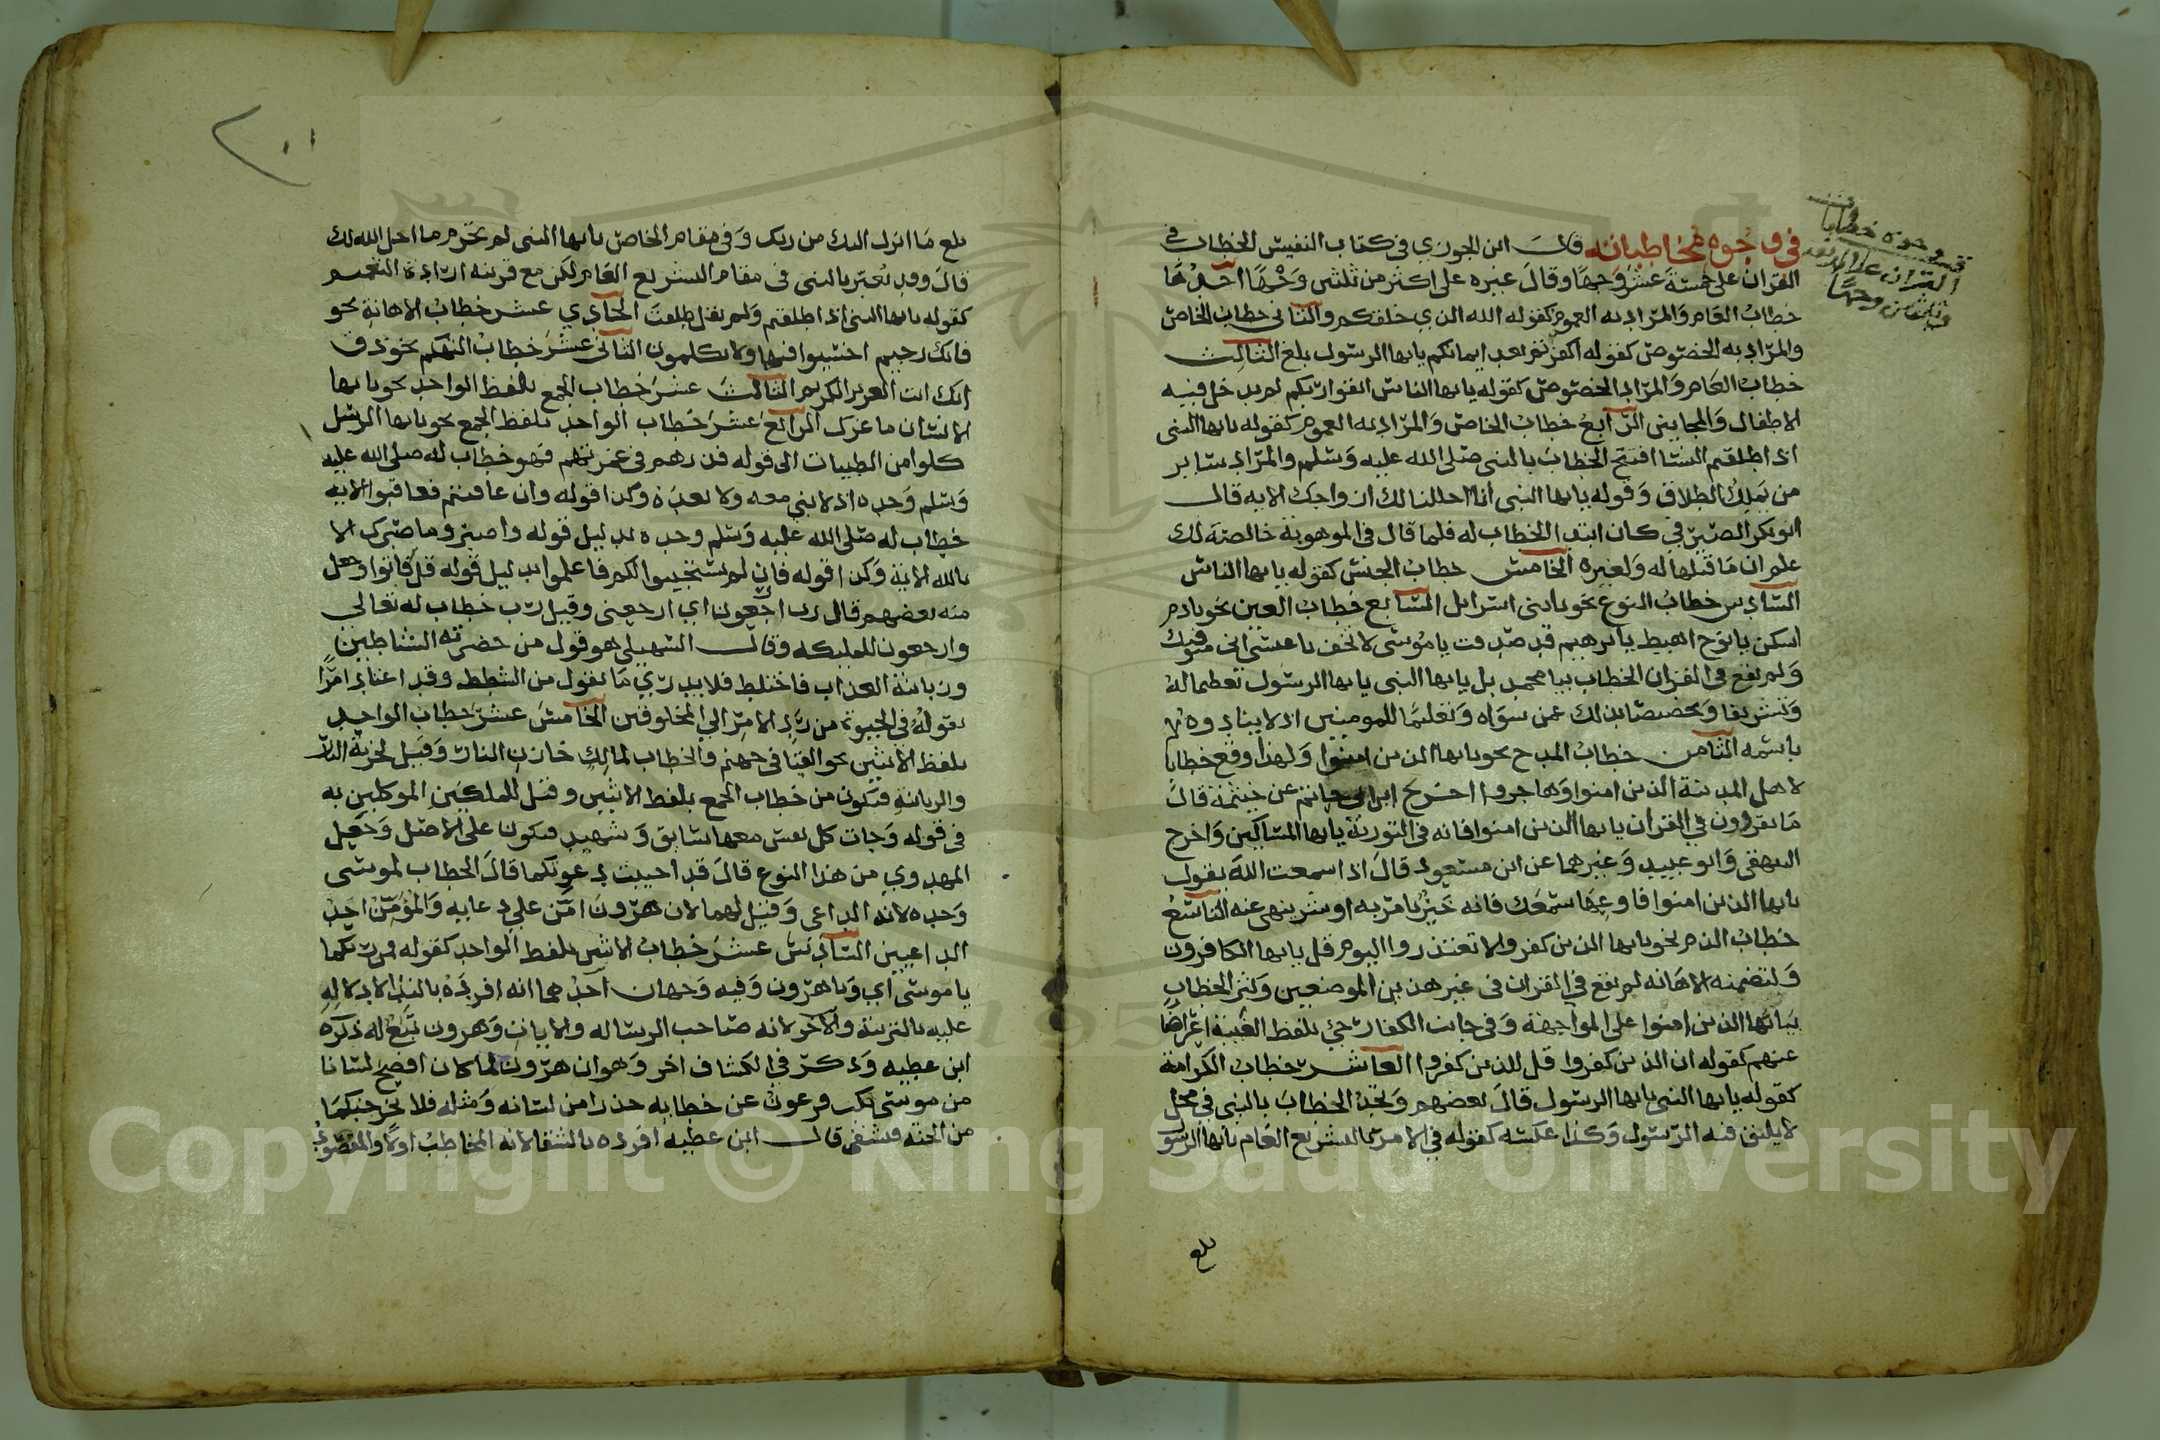 في وجوه مخاطباته قال ابن الجوزي في كتاب النفيس الخطاب في
القران على خمسة عشر وجها وقال غيره على اكثر من ثلثين وجها احدها
خطاب العام والمراد به العموم كقوله الله الذي خلقكم والثاني خطاب الخاص
والمراد به الخصوص كقوله اكفرتم بعد ايمانكم يايها الرسول بلغ الثالث
خطاب العام والمراد الخصوص كقوله يايها الناس اتقوا ربكم لم يدخل فيه
الاطفال والمجانين الرابع خطاب الخاص والمراد به العموم كقوله يايها النبي
اذا طلقتم النسا افتتح الخطاب بالنبي صلى الله عليه وسلم والمراد ساير
من يملك الطلاق وقوله يايها النبي انا احللنا لك ازواجك الاية قال
ابو بكر الصيرفي كان ابتدا الخطاب له فلما قال في الموهوبة خالصة لك
علم ان ما قبلها له ولغيره الخامس خطاب الجنس كقوله يايها الناس
السادس خطاب النوع نحو يابني اسرايل السابع خطاب العين نحو يادم
اسكن يانوح اهبط يابرهيم قد صدقت يا موسى لا تخف يا عيسى اني متوفيك
ولم يقع في القران الخطاب بيا محمد بل يايها النبي يايها الرسول تعظيما له
وتشريفا وتخصيصا بذلك عن سواه وتعليما للمومنين ان لا ينادوه
باسمه الثامن خطاب المدح نحو يايها الذين امنوا ولهذا وقع خطابا
لاهل المدينة الذين امنوا وهاجروا اخرج ابن ابي حاتم عن خيثمة قال
ما تقرون في القران يايها الذين امنوا فانه في التورية يايها المساكين واخرج
البيهقي وابو عبيد وغيرهما عن ابن مسعود قال اذا سمعت الله يقول
يايها الذين امنوا فاوعها سمعك فانه خير يامر به او شر ينهى عنه التاسع
خطاب الذم نحو يايها الذين كفروا لا تعتذروا اليوم قل يايها الكافرون
ولتضمنه الاهانه لم يقع في القران في غير هذين الموضعين وكثر الخطاب
بيايها الذين امنوا على المواجهة وفي جانب الكفار جيئ بلفظ الغيبة اعراضا
عنهم كقوله ان الذين كفروا قل للذين كفروا العاشر خطاب الكرامة
كقوله يايها النبي يايها الرسول قال بعضهم وتجد الخطاب بالنبي في محل
لا يليق فيه الرسول وكذا عكسه كقوله في الامر بالتشريع العام يايها الرسول
بلغ
وجوه خطابات
القران على
وثلاثين وجها
٢٠١
بلغ ما انزل اليك من ربك وفي مقام الخاص يايها النبي لم تحرم ما احل الله لك
قال وقد يعبر بالنبي في مقام التشريع العام لكن مع قرينه ارادة التعميم
كقوله يايها النبي اذا طلقتم ولم يقل طلقت الحادي عشر خطاب الاهانة نحو
فانك رجيم اخسيوا فيها ولا تكلمون الثاني عشر خطاب التهكم نحو ذق
انك انت العزيز الكريم الثالث عشر خطاب الجمع بلفظ الواحد نحو يايها
الانسان ما غرك الرابع عشر خطاب الواحد بلفظ الجمع نحو يايها الرسل
كلوا من الطيبات الى قوله فذرهم في غمرتهم فهو خطاب له صلى الله عليه
وسلم وحده اذ لا نبي معه ولا بعده وكذا قوله وان عاقبتم فعاقبوا الايه
خطاب له صلى الله عليه وسلم وحده بدليل قوله واصبر وما صبرك الا
بالله الاية وكذا قوله فان لم يستجيبوا لكم فاعلموا بدليل قوله قل فاتوا وجعل
منه بعضهم قال رب ارجعون اي ارجعني وقيل رب خطاب له تعالى
وارجعون للمليكه وقال السهيلي هو قول من حضرته الشياطين
وزبانية العذاب فاختلط فلا يدري ما يقول من الشطط وقد اعتاد امرا
يقوله في الحيوة من رد الامر الى المخلوقين الخامس عشر خطاب الواحد
بلفظ الاثنين نحو القيا في جهنم والخطاب لمالك خازن النار وقيل لخزنة النار
والزبانية فيكون من خطاب الجمع بلفظ الاثنين وقيل للملكين الموكلين به
في قوله وجات كل نفس معها سايق وشهيد فيكون على الاصل وجعل
المهدوي من هذا النوع قال قد اجيبت دعوتكما قال الخطاب لموسى
وحده لانه الداعي وقيل لهما لان هرون امن على دعايه والمؤمن احد
الداعيين السادس عشر خطاب الاثنين بلفظ الواحد كقوله فمن ربكما
يا موسى اي ويا هرون وفيه وجهان احدهما انه افرده بالندا لادلاله
عليه بالتربية والاخر لانه صاحب الرساله والايات وهرون تبع له ذكره
ابن عطيه وذكر في الكشاف اخر وهو ان هرون لما كان افصح لسانا
من موسى نكب فرعون عن خطابه حذرا من لسانه ومثله فلا يخرجنكما
من الجنه فتشقى قال ابن عطيه افرده بالشقا لانه المخاطب اولا والمقصود
Copyright © King Saud University